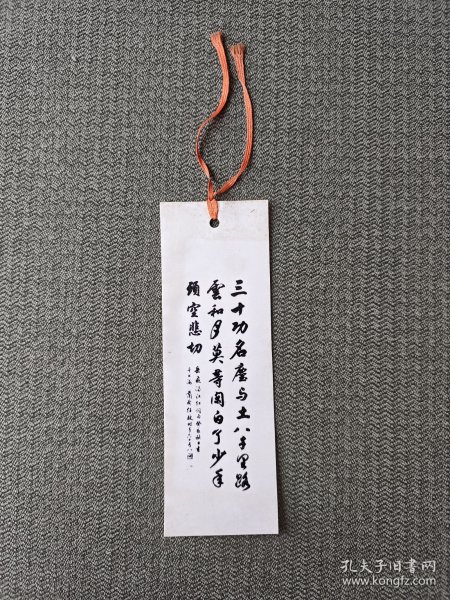 三十功名塵与土八千里路
雲和月莫等閑白了少年
頭空悲切
孔夫子旧书网
www.kongfz.com